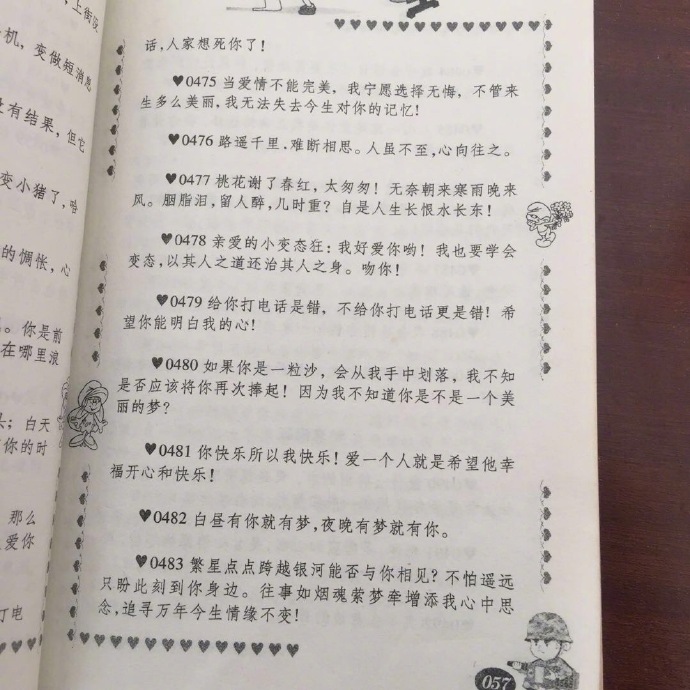 ，上街没
话，人家想死你了！
机，变做短消息
♥0475 当爱情不能完美，我宁愿选择无悔，不管来
生多么美丽，我无法失去今生对你的记忆！
没有结果，但它
♥0476 路遥千里．难断相思。人虽不至，心向往之。
变小猪了，哈
♥0477 桃花谢了春红，太匆匆！无奈朝来寒雨晚来
风。胭脂泪，留人醉，几时重？自是人生长恨水长东！
的惆怅，心
♥0478 亲爱的小变态狂：我好爱你哟！我也要学会
变态，以其人之道还治其人之身。吻你！
♥0479 给你打电话是错，不给你打电话更是错！希
望你能明白我的心！
。你是前
在哪里浪
♥0480 如果你是一粒沙，会从我手中划落，我不知
是否应该将你再次捧起！因为我不知道你是不是一个美
丽的梦？
；白天
你的时
♥0481 你快乐所以我快乐！爱一个人就是希望他幸
福开心和快乐！
那么
爱你
♥0482 白昼有你就有梦，夜晚有梦就有你。
♥0483 繁星点点跨越银河能否与你相见？不怕遥远
只盼此刻到你身边。往事如烟魂萦梦牵增添我心中思
念，追寻万年今生情缘不变！
打电
057